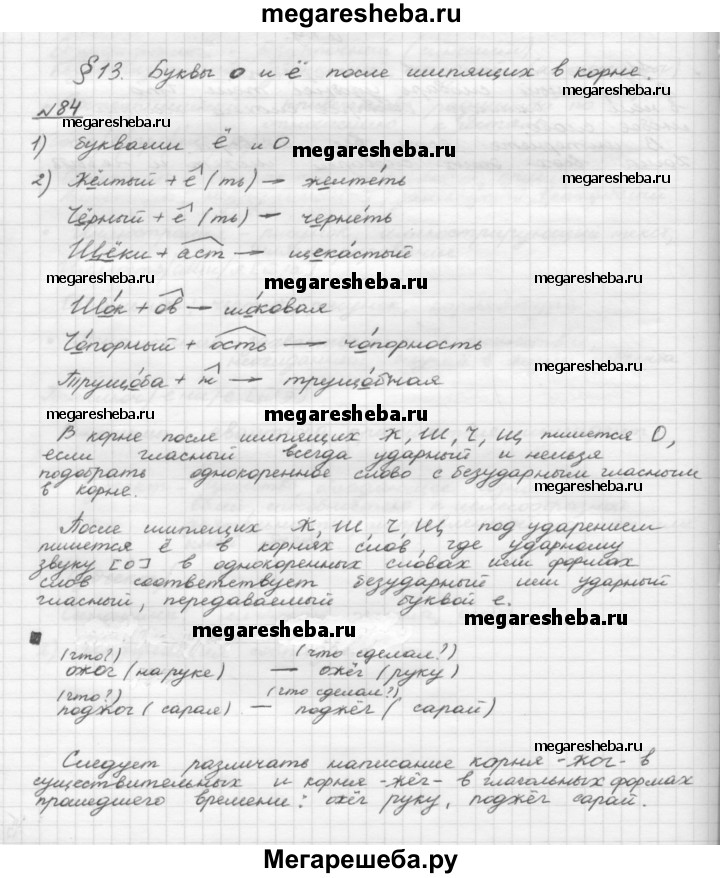 megaresheba.ru megaresheba.ru
§13. Буквы о и ё после шипящих в корне.
№84
megaresheba.ru megaresheba.ru
1) буквами ё и о
2) Жёлтый + е (ть) — желте́ть megaresheba.ru
Чёрный + е (ть) — черне́ть
Щёки + аст — щека́стый
megaresheba.ru megaresheba.ru megaresheba.ru
Шо́к + ов — шо́ковая
Чо́порный + ость — чо́порность
megaresheba.ru
Трущо́ба + н — трущо́бная
В корне после шипящих Ж, Ш, Ч, Щ пишется О,
если гласный всегда ударный и нельзя
подобрать однокоренное слово с безударным гласным
в корне. megaresheba.ru
После шипящих Ж, Ш, Ч, Щ под ударением
пишется ё в корнях слов, где ударному
звуку [о] в однокоренных словах или формах
слов соответствует безударный или ударный
гласный, передаваемый буквой е.
megaresheba.ru megaresheba.ru
(что?) (что сделал?)
ожог (на руке) — ожёг (руку)
(что?) (что сделал?)
поджог (сарая) — поджёг (сарай)
megaresheba.ru
Следует различать написание корня -жог- в
существительных и корня -жёг- в глагольных формах
прошедшего времени: ожёг руку, поджёг сарай.
Мегарешеба.ру